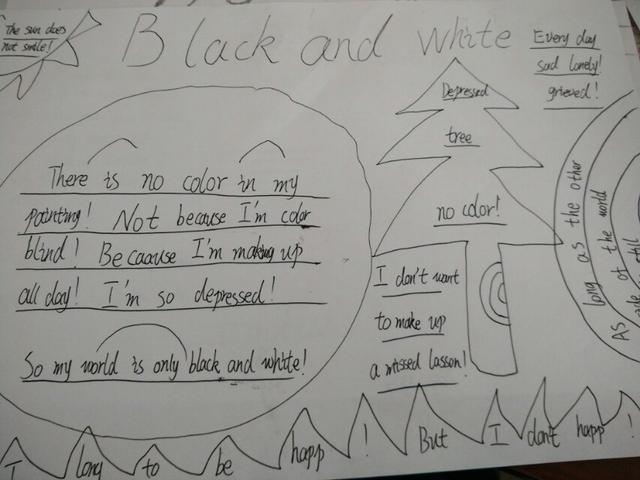 The sun does
not smile!
Black and white
Every day
sad lonely!
grieved!
Depressed
tree
no color!
There is no color in my
painting! Not because I'm color
blind! Becaause I'm making up
all day! I'm so depressed!
So my world is only black and white!
I don't want
to make up
a missed lasson!
long as the other
of the world
still
As
I long to be happ! But I don't happ!